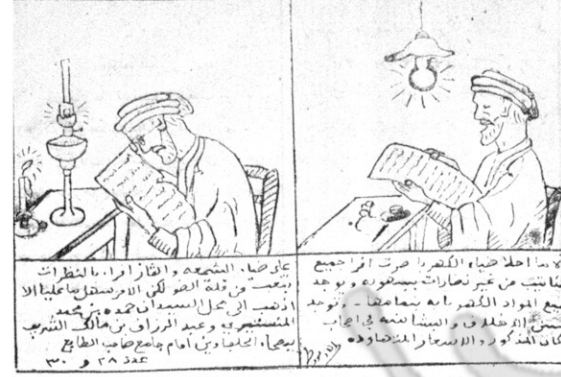 ما احلا ضياء الكهرباء صرت اقرا جميع
من غير نضارات بسهوله ويوجد
المواد الكهربائيه بتمامها - وتوجد
حسن الاخلاق و البشاشه في اصحاب
المذكور والاسعار المتهاوده
على ضياء الشمعه و الغاز اقراء بالنظرات
من قلة الضو لكن الامر سهل ما علينا الا
اذهب الى محل السيدان حمده بن محمد
المنستيري وعبد الرزاق بن مالك الشريف
الحلفاوين امام جامع صاحب الطابع
عدد ٢٨ و ٣٠